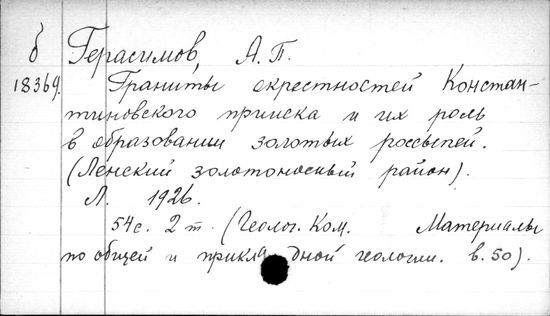 б Герасимов, А.П.
18369. Граниты окрестностей Констан-
тиновского прииска и их роль
в образовании золотых россыпей.
(Ленский золотоносный район).
Л. 1926.
54с. 2 т. (Геолог. Ком. Материалы
по общей и прикладной геологии. в.50).